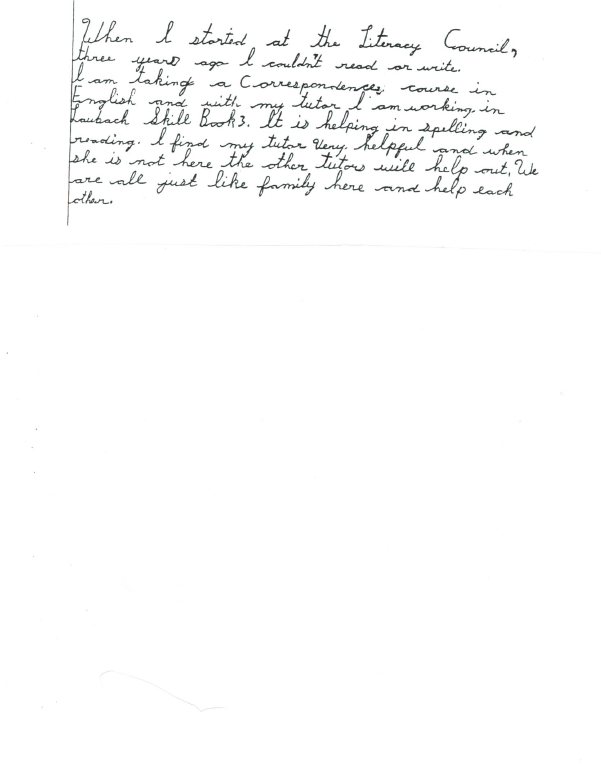 When I started at the Literacy Council,
three years ago I couldn't read or write.
I am taking a Correspondences, course in
English and with my tutor I am working, in
Laubach Skill Book 3. It is helping in spelling and
reading. I find my tutor Very, helpful and when
she is not here the other tutors will help out, We
are all just like family here and help each
other.